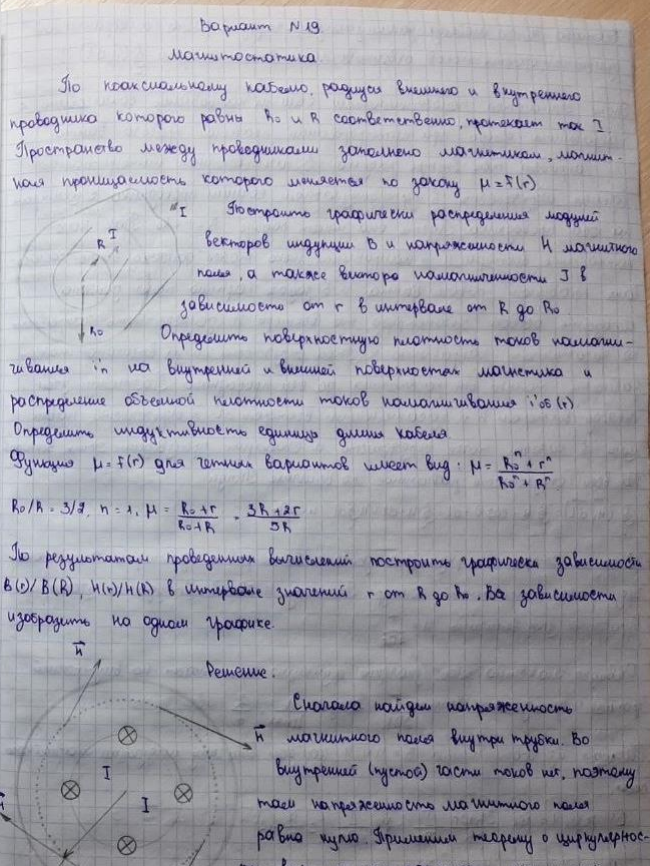 Вариант N 19.
Магнитостатика
По коаксиальному кабелю, радиусы внешнего и внутреннего
проводника которого равны R₀ и R соответственно, протекает ток I.
Пространство между проводниками заполнено магнетиком, магнит-
ная проницаемость которого меняется по закону μ = f(r)
I
Построить графически распределения модулей
R I
векторов индукции B и напряженности H магнитного
поля, а также вектора намагниченности J в
зависимость от r в интервале от R до R₀.
R₀
Определить поверхностную плотность токов намагни-
чивания i'п на внутренней и внешней поверхностях магнетика и
распределение объемной плотности токов намагничивания i'об (r)
Определить индуктивность единицы длины кабеля
Функция μ = f(r) для четных вариантов имеет вид: μ = (R₀ⁿ + rⁿ)/(R₀ⁿ + Rⁿ)
R₀/R = 3/2, n = 1, μ = (R₀ + r)/(R₀ + R) = (3R + 2r)/5R
По результатам проведенных вычислений построить графически зависимости
B(r)/B(R), H(r)/H(R) в интервале значений r от R до R₀. Все зависимости
изобразить на одном графике.
Решение.
Сначала найдем напряженность
магнитного поля внутри трубки. Во
внутренней (пустой) части токов нет, поэтому
там напряженность магнитного поля
равна нулю. Применим теорему о циркулярнос-
I
I